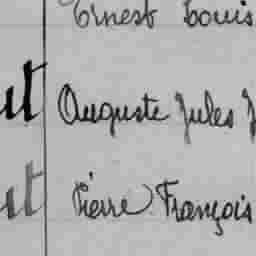 Ernest Louis
ut Auguste Jules J
ut Pierre François